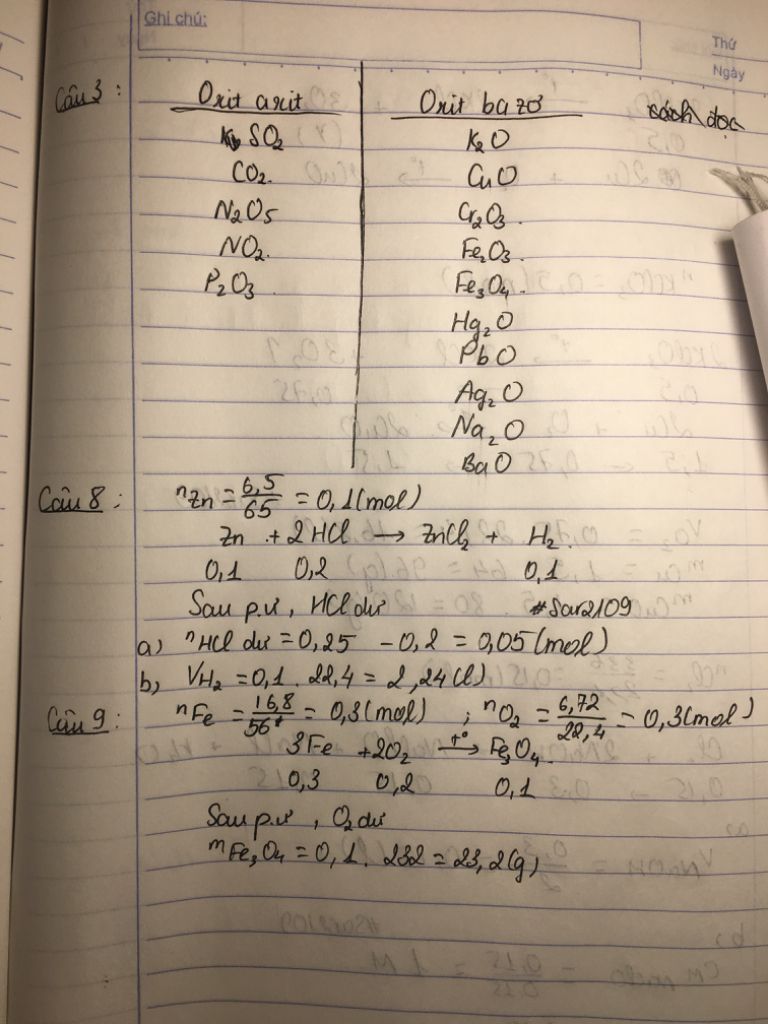 Ghi chú:
Thứ
Ngày
Câu 3 : Oxit axit Oxit bazơ cách đọc
SO₂ K₂O
CO₂. CuO
N₂O₅ Cr₂O₃.
NO₂. Fe₂O₃.
P₂O₃ Fe₃O₄.
Hg₂O
PbO
Ag₂O
Na₂O
BaO
Câu 8 : nZn = 6,5/65 = 0,1(mol)
Zn + 2HCl → ZnCl₂ + H₂.
0,1 0,2 0,1
Sau p.ư , HCl dư #Sar2109
a) nHCl dư = 0,25 - 0,2 = 0,05(mol)
b, VH₂ = 0,1 . 22,4 = 2,24(l)
Câu 9 : nFe = 16,8/56 = 0,3(mol) ; nO₂ = 6,72/22,4 = 0,3(mol)
3Fe + 2O₂ t°→ Fe₃O₄.
0,3 0,2 0,1
Sau p.ư , O₂ dư
mFe₃O₄ = 0,1 . 232 = 23,2(g)